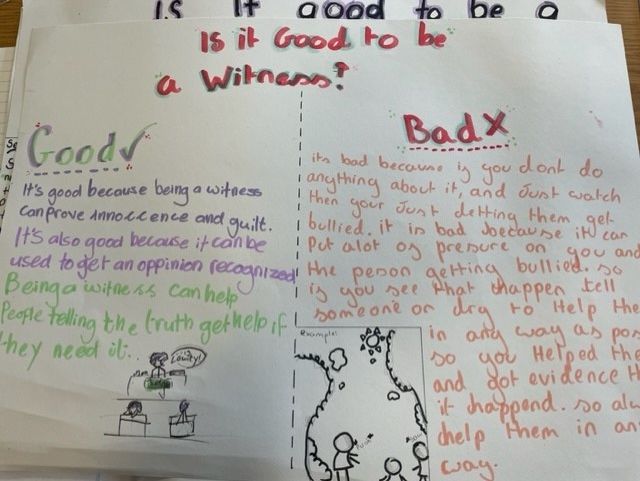 Is it good to be a
Is it Good to be
a Witness?
Good
It's good because being a witness
can prove innoccence and guilt.
It's also good because it can be
used to get an oppinion recognized
Being a witness can help
People telling the truth get help if
they need it.
Bad X
its bad because if you dont do
anything about it, and Just watch
then your Just detting them get
bullied. it is bad because it can
put alot of presure on you and
the peson getting bullied. so
if you see that thappen tell
someone or dry to Help the
in any way as pos
so you Helped the
and dot evidence th
it happend. so alw
help them in an
way.
example: